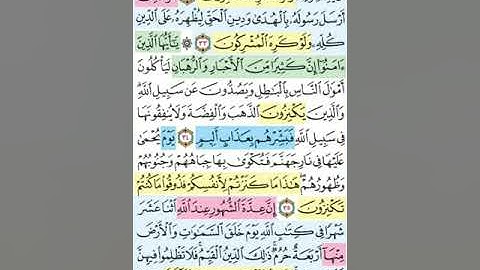 أَرْسَلَ رَسُولَهُۥ بِٱلْهُدَىٰ وَدِينِ ٱلْحَقِّ لِيُظْهِرَهُۥ عَلَى ٱلدِّينِ
كُلِّهِۦ وَلَوْ كَرِهَ ٱلْمُشْرِكُونَ ٣٣ ۞ يَـٰٓأَيُّهَا ٱلَّذِينَ
ءَامَنُوٓا۟ إِنَّ كَثِيرًا مِّنَ ٱلْأَحْبَارِ وَٱلرُّهْبَانِ لَيَأْكُلُونَ
أَمْوَٰلَ ٱلنَّاسِ بِٱلْبَـٰطِلِ وَيَصُدُّونَ عَن سَبِيلِ ٱللَّهِ ۗ
وَٱلَّذِينَ يَكْنِزُونَ ٱلذَّهَبَ وَٱلْفِضَّةَ وَلَا يُنفِقُونَهَا
فِى سَبِيلِ ٱللَّهِ فَبَشِّرْهُم بِعَذَابٍ أَلِيمٍ ٣٤ يَوْمَ يُحْمَىٰ
عَلَيْهَا فِى نَارِ جَهَنَّمَ فَتُكْوَىٰ بِهَا جِبَاهُهُمْ وَجُنُوبُهُمْ
وَظُهُورُهُمْ ۖ هَـٰذَا مَا كَنَزْتُمْ لِأَنفُسِكُمْ فَذُوقُوا۟ مَا كُنتُمْ
تَكْنِزُونَ ٣٥ إِنَّ عِدَّةَ ٱلشُّهُورِ عِندَ ٱللَّهِ ٱثْنَا عَشَرَ
شَهْرًا فِى كِتَـٰبِ ٱللَّهِ يَوْمَ خَلَقَ ٱلسَّمَـٰوَٰتِ وَٱلْأَرْضَ
مِنْهَآ أَرْبَعَةٌ حُرُمٌ ۚ ذَٰلِكَ ٱلدِّينُ ٱلْقَيِّمُ ۚ فَلَا تَظْلِمُوا۟ فِيهِنَّ